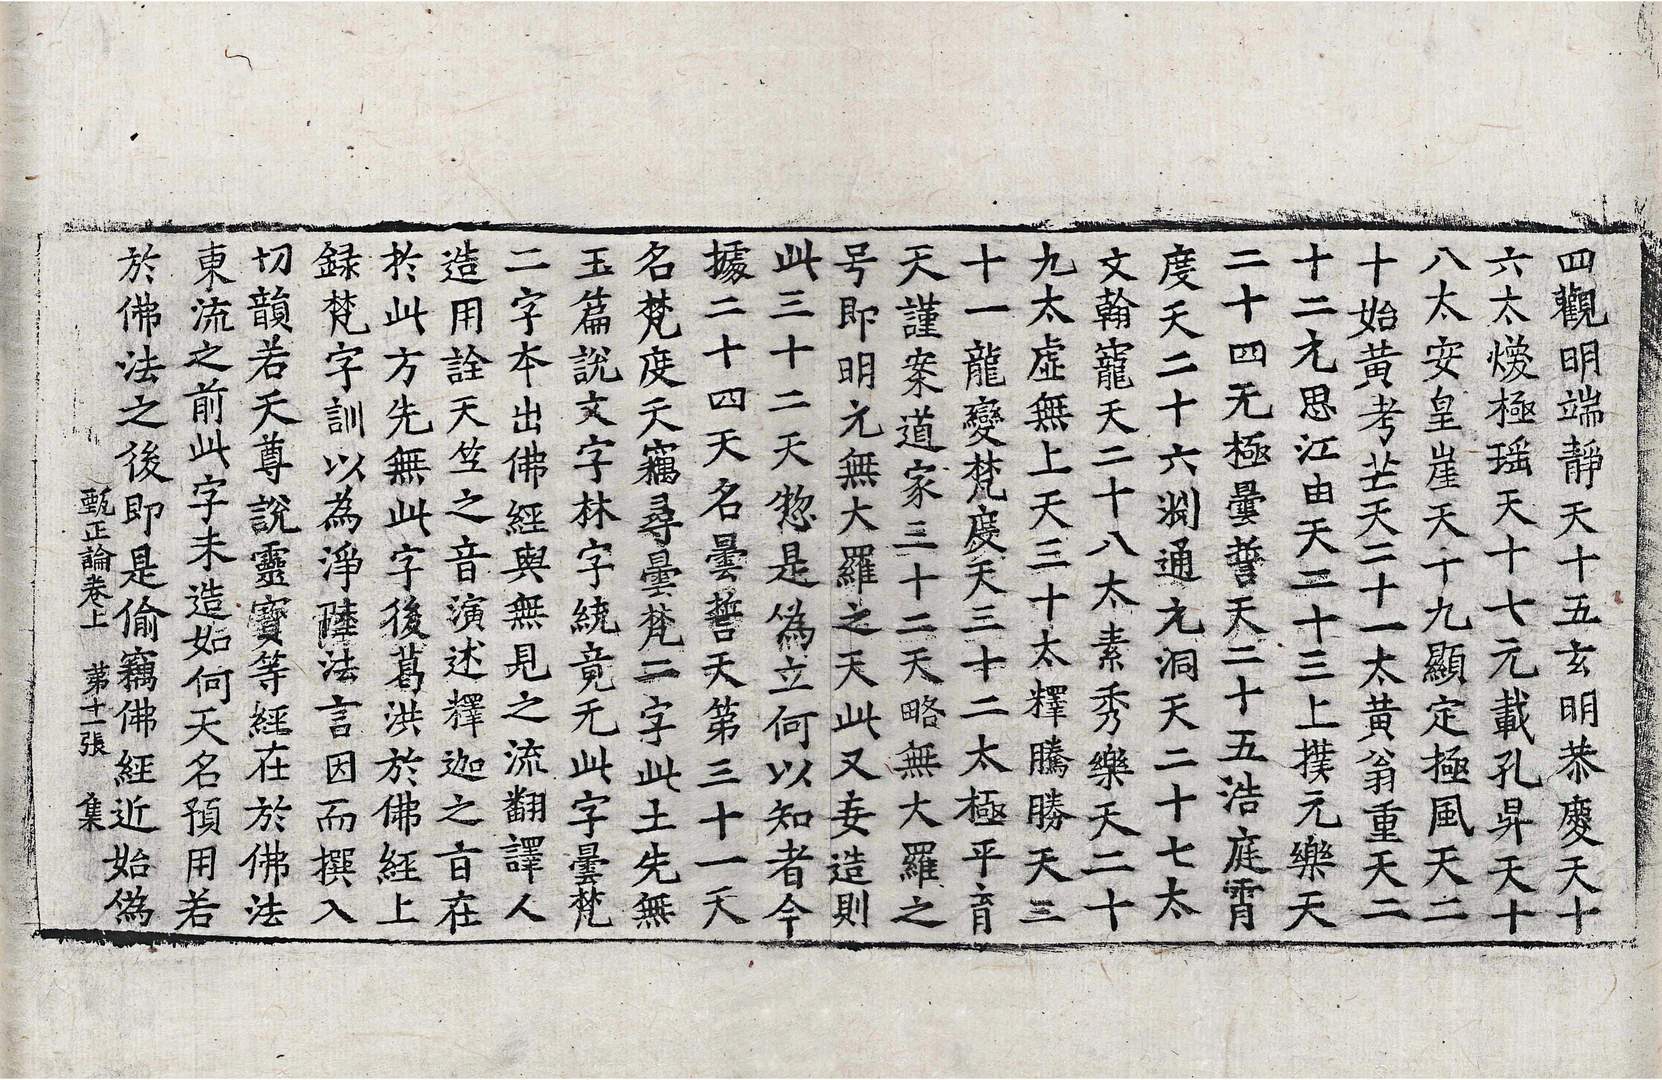 四觀明端靜天十五玄明恭慶天十
六太煥極瑶天十七元載孔昇天十
八太安皇崖天十九顯定極風天二
十始黃考芒天二十一太黃翁重天二
十二无思江由天二十三上揲元樂天
二十四无極曇誓天二十五浩庭霄
度天二十六渊通元洞天二十七太
文翰寵天二十八太素秀樂天二十
九太虛無上天三十太釋騰勝天三
十一龍變梵度天三十二太極平育
天謹案道家三十二天略無大羅之
号即明元無大羅之天此又妄造則
此三十二天惣是僞立何以知者今
據二十四天名曇誓天第三十一天
名梵度天竊尋曇梵二字此土先無
玉篇說文字林字統竟无此字曇梵
二字本出佛經與無見之流翻譯人
造用詮天竺之音演述釋迦之言在
於此方先無此字後葛洪於佛經上
録梵字訓以為淨陸法言因而撰入
切韻若天尊說靈寶等經在於佛法
東流之前此字未造如何天名預用若
於佛法之後即是偷竊佛經近始偽
甄正論卷上　第十一張　集